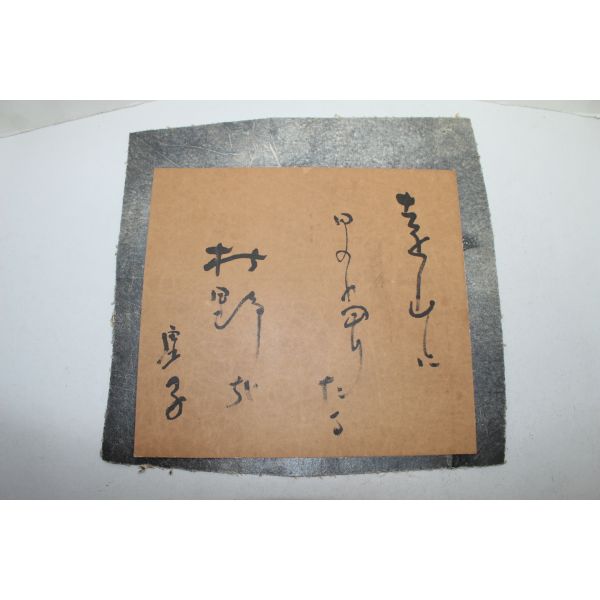 遠山に
日の當りたる
枯野哉
虚子